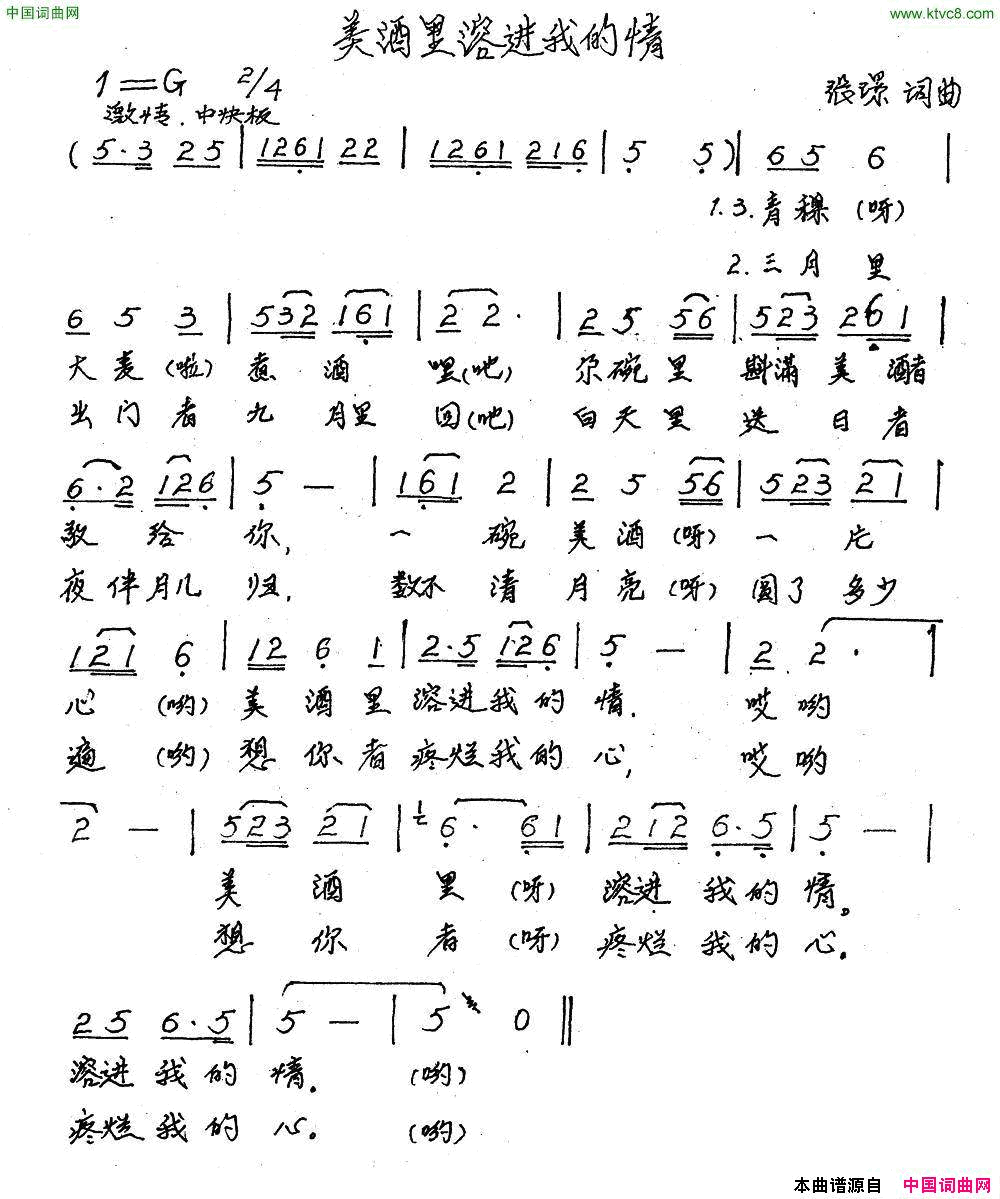 中国词曲网 www.ktvc8.com
美酒里溶进我的情
1=G 2/4 张璟 词曲
激情.中快板
( 5·3 2 5 | 1 2 6 1 2 2 | 1 2 6 1 2 1 6 | 5 5 ) | 6 5 6 |
1.3.青稞(呀)
2.三月里
6 5 3 | 5 3 2 1 6 1 | 2 2· | 2 5 5 6 | 5 2 3 2 6 1 |
大麦(啦)煮酒嘿(吔)尕碗里斟满美醅
出门者九月里回(吔)白天里送日者
6·2 1 2 6 | 5 — | 1 6 1 2 | 2 5 5 6 | 5 2 3 2 1 |
敬给你,一碗美酒(呀)一片
夜伴月儿归,数不清月亮(呀)圆了多少
1 2 1 6 | 1 2 6 1 | 2·5 1·2 6 | 5 — | 2 2· |
心(哟)美酒里溶进我的情.哎哟
遍(哟)想你者疼烂我的心,哎哟
2 — | 5 2 3 2 1 | 1 6· 6 1 | 2 1 2 6·5 | 5 — |
美酒里(呀)溶进我的情。
想你者(呀)疼烂我的心.
2 5 6·5 | 5 — | 5 0 ‖
溶进我的情.(哟)
疼烂我的心.(哟)
本曲谱源自 中国词曲网